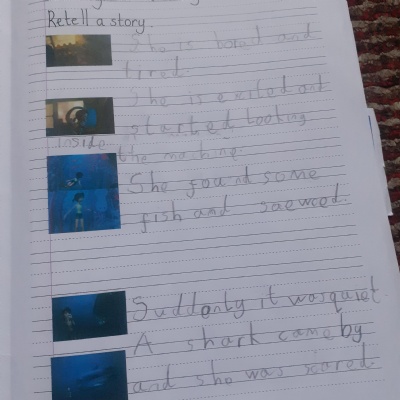 Retell a story.
She is bord and
tired.
She is exited and
started looking
inside
the machine.
She found some
fish and saewed.
Suddanly it was quiet.
A shark came by
and she was scared.